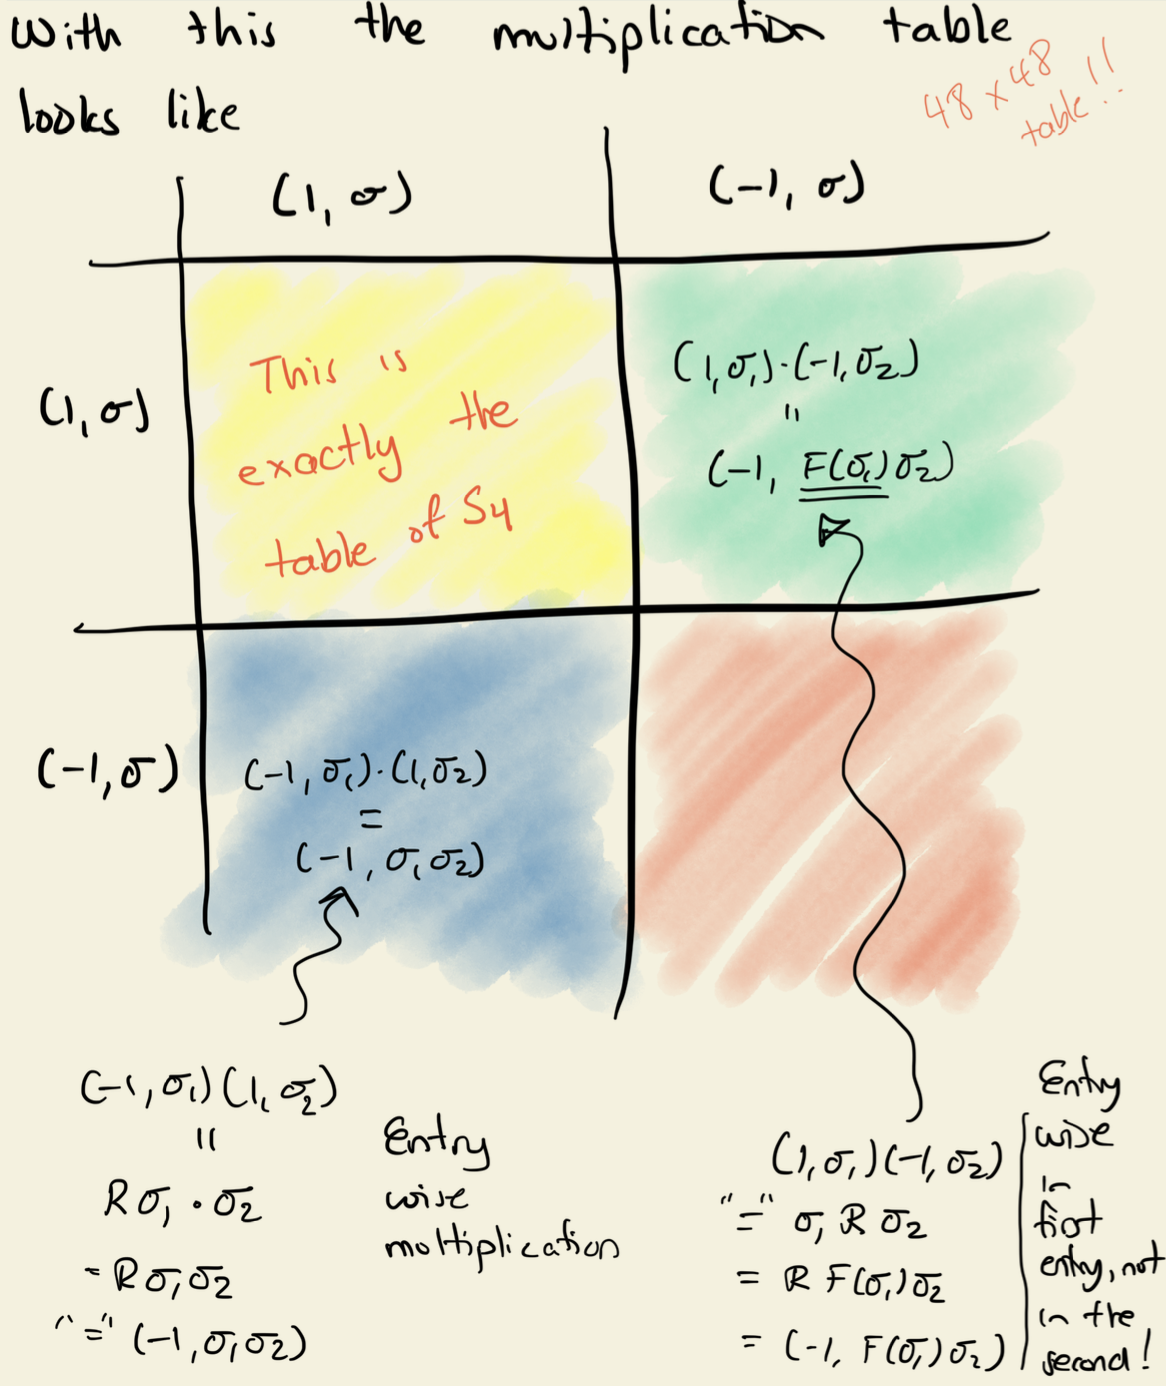 With this the multiplication table
looks like
48 x 48
table!!
(1, σ)
(-1, σ)
(1, σ)
This is
exactly the
table of S4
(1, σ₁)·(-1, σ₂)
"
(-1, F(σ₁)σ₂)
(-1, σ)
(-1, σ₁)·(1, σ₂)
=
(-1, σ₁σ₂)
(-1, σ₁)(1, σ₂)
"
Rσ₁ · σ₂
= Rσ₁σ₂
"=" (-1, σ₁σ₂)
Entry
wise
multiplication
(1, σ₁)(-1, σ₂)
"=" σ₁ R σ₂
= R F(σ₁)σ₂
= (-1, F(σ₁)σ₂)
Entry
wise
in
first
entry, not
in the
second!